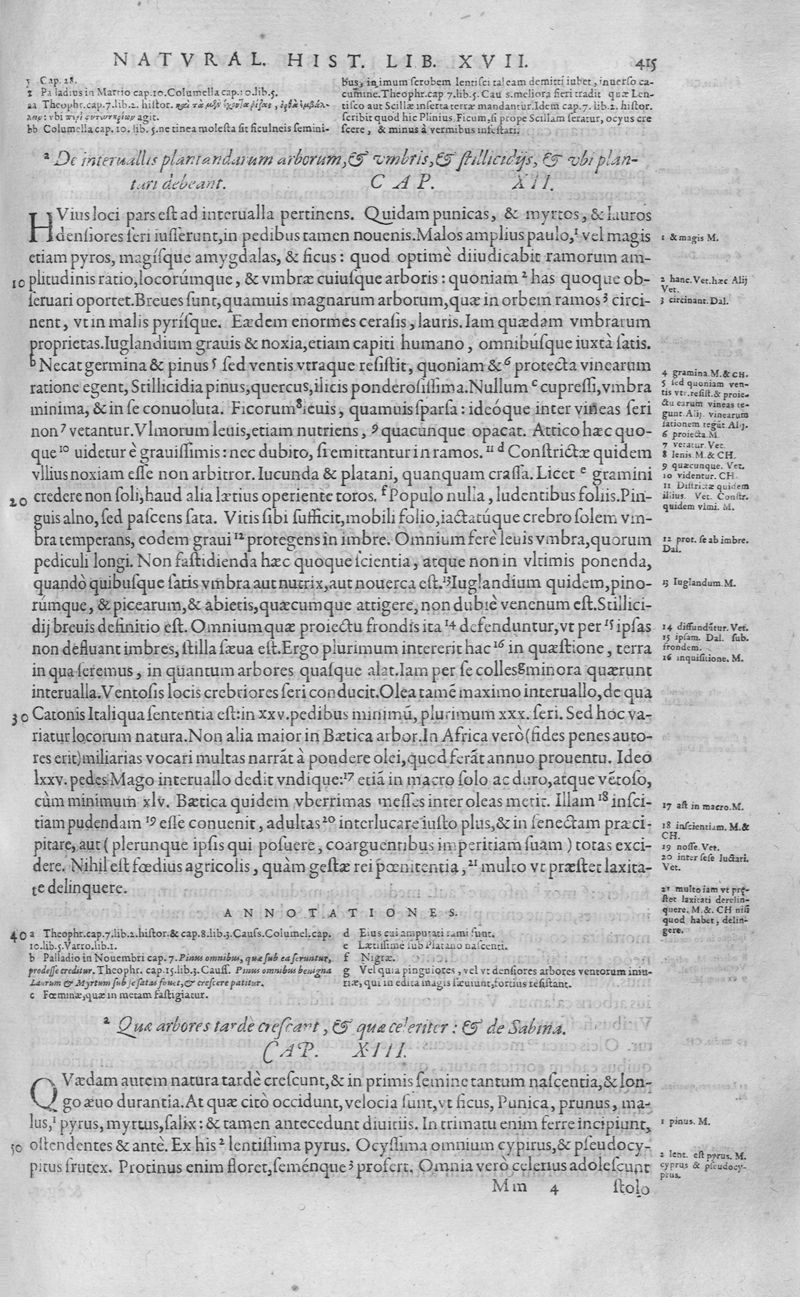 NATVRAL. HIST. LIB. XVII. 415
y Cap. 28.
z Palladius in Martio cap.10.Columella cap.10.lib.5.
aa Theophr.cap.7.lib.2. histor.
agit.
bb Columella cap. 10. lib. 5. ne tinea molesta sit ficulneis semini-
bus, in imum scrobem lentisci taleam demitti iubet, inuerso ca-
cumine. Theophr.cap 7.lib.5. Caus.meliora fieri tradit quæ Len-
tisco aut Scillæ inserta terræ mandantur. Idem cap.7. lib.2. histor.
scribit quod hic Plinius. Ficum, si prope Scillam seratur, ocyus cre
scere, & minus à vermibus infestari.
a De interuallis plantandarum arborum, & vmbris, & stillicidijs, & vbi plan-
tari debeant. CAP. XII.
HVius loci pars est ad interualla pertinens. Quidam punicas, & myrtos, & lauros
densiores seri iusserunt, in pedibus tamen nouenis. Malos amplius paulo,¹ vel magis
etiam pyros, magísque amygdalas, & ficus: quod optimè diiudicabit ramorum am-
10 plitudinis ratio, locorúmque, & vmbræ cuiusque arboris: quoniam ² has quoque ob-
seruari oportet. Breues sunt, quamuis magnarum arborum, quæ in orbem ramos ³ circi-
nent, vt in malis pyrísque. Eædem enormes cerasis, lauris. Iam quædam vmbrarum
proprietas. Iuglandium grauis & noxia, etiam capiti humano, omnibúsque iuxtà satis.
b Necat germina & pinus ⁵ sed ventis vtraque resistit, quoniam & ⁶ protecta vinearum
ratione egent, Stillicidia pinus, quercus, ilicis ponderosissima. Nullum c cupressi, vmbra
minima, & in se conuoluta. Ficorum ⁸ leuis, quamuis sparsa: ideóque inter vineas seri
non ⁷ vetantur. Vlmorum leuis, etiam nutriens, ⁹ quacunque opacat. Attico hæc quo-
que ¹⁰ uidetur è grauissimis: nec dubito, si emittantur in ramos. ¹¹ d Constrictæ quidem
vllius noxiam esse non arbitror. Iucunda & platani, quanquam crassa. Licet e gramini
20 credere non soli, haud alia lætius operiente toros. f Populo nulla, ludentibus foliis. Pin-
guis alno, sed pascens sata. Vitis sibi sufficit, mobili folio, iactatúque crebro solem vm-
bra temperans, eodem graui ¹² protegens in imbre. Omnium ferè leuis vmbra, quorum
pediculi longi. Non fastidienda hæc quoque scientia, atque non in vltimis ponenda,
quandò quibusque satis vmbra aut nutrix, aut nouerca est. ¹³ Iuglandium quidem, pino-
rúmque, & picearum, & abietis, quæcumque attigere, non dubiè venenum est. Stillici-
dij breuis definitio est. Omnium quæ proiectu frondis ita ¹⁴ defenduntur, vt per ¹⁵ ipsas
non defluant imbres, stilla sæua est. Ergo plurimum intererit hac ¹⁶ in quæstione, terra
in qua seremus, in quantum arbores quasque alat. Iam per se colles g minora quærunt
interualla. Ventosis locis crebriores seri conducit. Olea tamẽ maximo interuallo, de qua
30 Catonis Italiqua sententia est: in XXV. pedibus minimũ, plurimum XXX. seri. Sed hoc va-
riatur locorum natura. Non alia maior in Bætica arbor. In Africa verò (fides penes auto-
res erit) miliarias vocari multas narrãt à pondere olei, quod ferãt annuo prouentu. Ideo
lxxv. pedes Mago interuallo dedit vndique: ¹⁷ etiã in macro solo ac duro, atque vẽtoso,
cùm minimum xlv. Bætica quidem vberrimas messes inter oleas metit. Illam ¹⁸ insci-
tiam pudendam ¹⁹ esse conuenit, adultas ²⁰ interlucare iusto plus, & in senectam præci-
pitare, aut (plerunque ipsis qui posuere, coarguentibus imperitiam suam) totas exci-
dere. Nihil est fœdius agricolis, quàm gestæ rei pœnitentia, ²¹ multo vt præstet laxita-
te delinquere.
1 & magis M.
2 hanc. Vet. hæc Alij
Vet.
3 circinant. Dal.
4 gramina M. & CH.
5 sed quoniam ven-
tis vtr. resist. & proie-
ctu earum vineas te-
gunt. Alij. vinearum
sationem tegũt Alij.
6 proiecta M.
7 veratur. Vet.
8 lenis M. & CH.
9 quæcunque. Vet.
10 videntur. CH.
11 Districtæ quidem
illius. Vet. Constr.
quidem vlmi. M.
12 prot. se ab imbre.
Dal.
13 Iuglandum. M.
14 diffundũtur. Vet.
15 ipsam. Dal. sub.
frondem.
16 inquisitione. M.
17 ast in macro. M.
18 inscientiam. M. &
CH.
19 nosse. Vet.
20 inter sese luctari.
Vet.
21 multo iam vt præ-
stet laxitati derelin-
quere. M. &. CH nisi
quod habet, delin-
gere.
ANNOTATIONES.
40 a Theophr.cap.7.lib.2.histor.& cap.8.lib.3.Causs.Columel.cap.
10.lib.5.Varro.lib.1.
b Palladio in Nouembri cap. 7. Pinus omnibus, quæ sub ea seruntur,
prodesse creditur. Theophr. cap.15.lib.3.Causs. Pinus omnibus benigna
Laurum & Myrtum sub se satas fouet, & crescere patitur.
c Fœminæ, quæ in metam fastigiatur.
d Eius cui amputati rami sunt.
e Lætissimè sub Platano nascenti.
f Nigræ.
g Vel quia pinguiores, vel vt densiores arbores ventorum iniu-
riæ, qui in edita magis sæuiunt, fortius resistant.
a Quæ arbores tarde crescant, & quæ celeriter: & de Sabina.
CAP. XIII.
QVædam autem natura tardè crescunt, & in primis semine tantum nascentia, & lon-
go æuo durantia. At quæ citò occidunt, velocia sunt, vt ficus, Punica, prunus, ma-
lus,¹ pyrus, myrtus, salix: & tamen antecedunt diuitiis. In trimatu enim ferre incipiunt,
50 ostendentes & antè. Ex his ² lentissima pyrus. Ocyssima omnium cypirus, & pseudocy-
pirus frutex. Protinus enim floret, seménque ³ profert. Omnia verò celerius adolescunt
1 pinus. M.
2 lent. est pyrus. M.
cyprus & pseudocy-
prus.
Mm 4 stolo